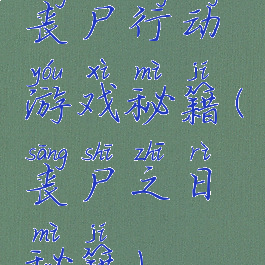 丧尸行动
yóu xì mì jí
游戏秘籍(
sāng shī zhī rì
丧尸之日
mì jí
秘籍)